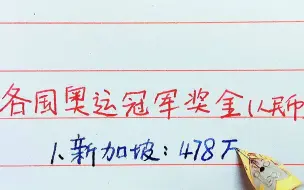 各国奥运冠军奖金(人民币
1、新加坡：478万